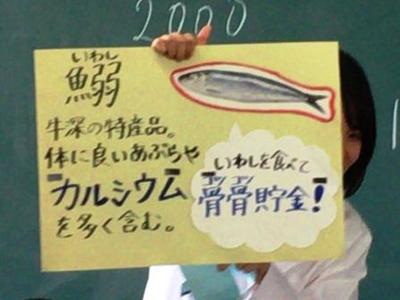 2000
いわし
鰯
牛深の特産品。
体に良いあぶらや
"カルシウム"
を多く含む。
いわしを食べて
コツコツ
骨骨貯金!